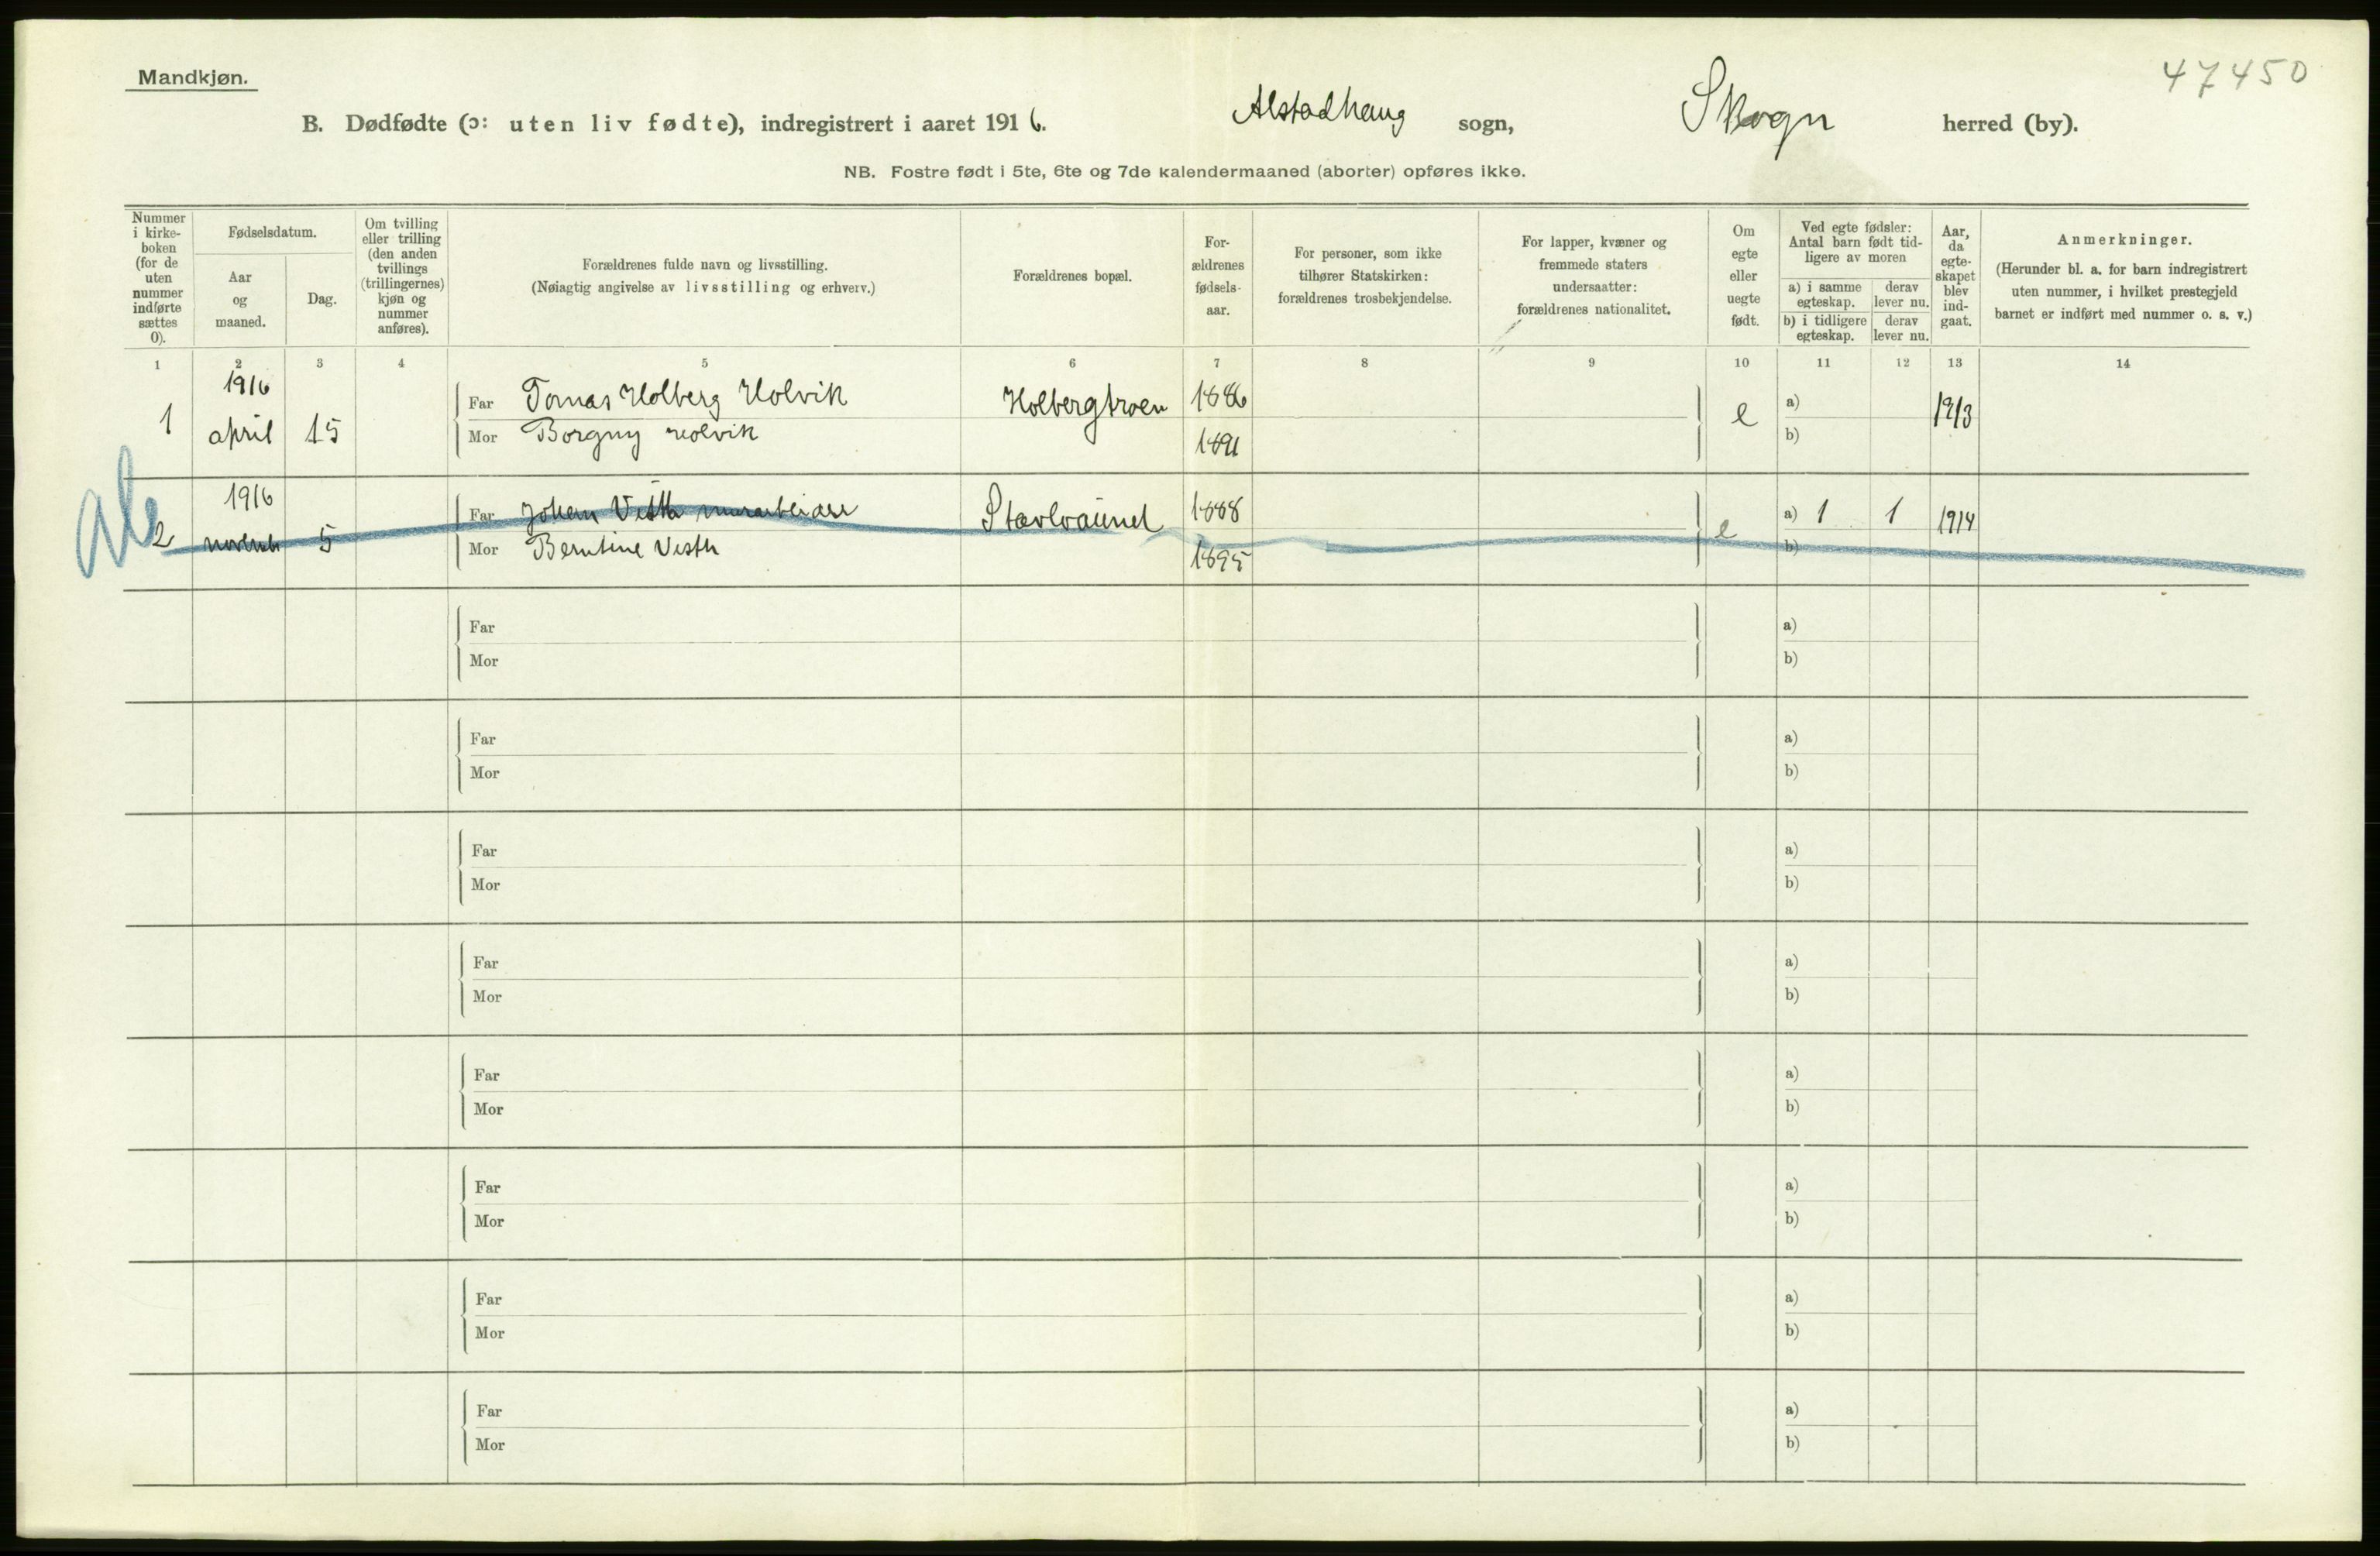 47450
Mandkjøn.
B. Dødfødte (ɔ: uten liv fødte), indregistrert i aaret 1916. Alstadhaug sogn, Skogn herred (by).
NB. Fostre født i 5te, 6te og 7de kalendermaaned (aborter) opføres ikke.
Nummer
i kirke-
boken
(for de
uten
nummer
indførte
sættes
0).
Fødselsdatum.
Aar
og
maaned.
Dag.
Om tvilling
eller trilling
(den anden
tvillings
(trillingernes)
kjøn og
nummer
anføres).
Forældrenes fulde navn og livsstilling.
(Nøiagtig angivelse av livsstilling og erhverv.)
Forældrenes bopæl.
For-
ældrenes
fødsels-
aar.
For personer, som ikke
tilhører Statskirken:
forældrenes trosbekjendelse.
For lapper, kvæner og
fremmede staters
undersaatter:
forældrenes nationalitet.
Om
egte
eller
uegte
født.
Ved egte fødsler:
Antal barn født tid-
ligere av moren
a) i samme
egteskap.
derav
lever nu.
b) i tidligere
egteskap.
derav
lever nu.
Aar,
da
egte-
skapet
blev
ind-
gaat.
Anmerkninger.
(Herunder bl. a. for barn indregistrert
uten nummer, i hvilket prestegjeld
barnet er indført med nummer o. s. v.)
1 2 3 4 5 6 7 8 9 10 11 12 13 14
1916
1 april 15 Far Tomas Holberg Holvik Holbergtroen 1886 e a) 1913
Mor Borgny Holvik 1891 b)
1916
2 novemb 5 Far Johan Vesth murarbeider 1888 e a) 1 1 1914
Mor Berntine Vesth 1895 b)
Far a)
Mor b)
Far a)
Mor b)
Far a)
Mor b)
Far a)
Mor b)
Far a)
Mor b)
Far a)
Mor b)
Far a)
Mor b)
Far a)
Mor b)